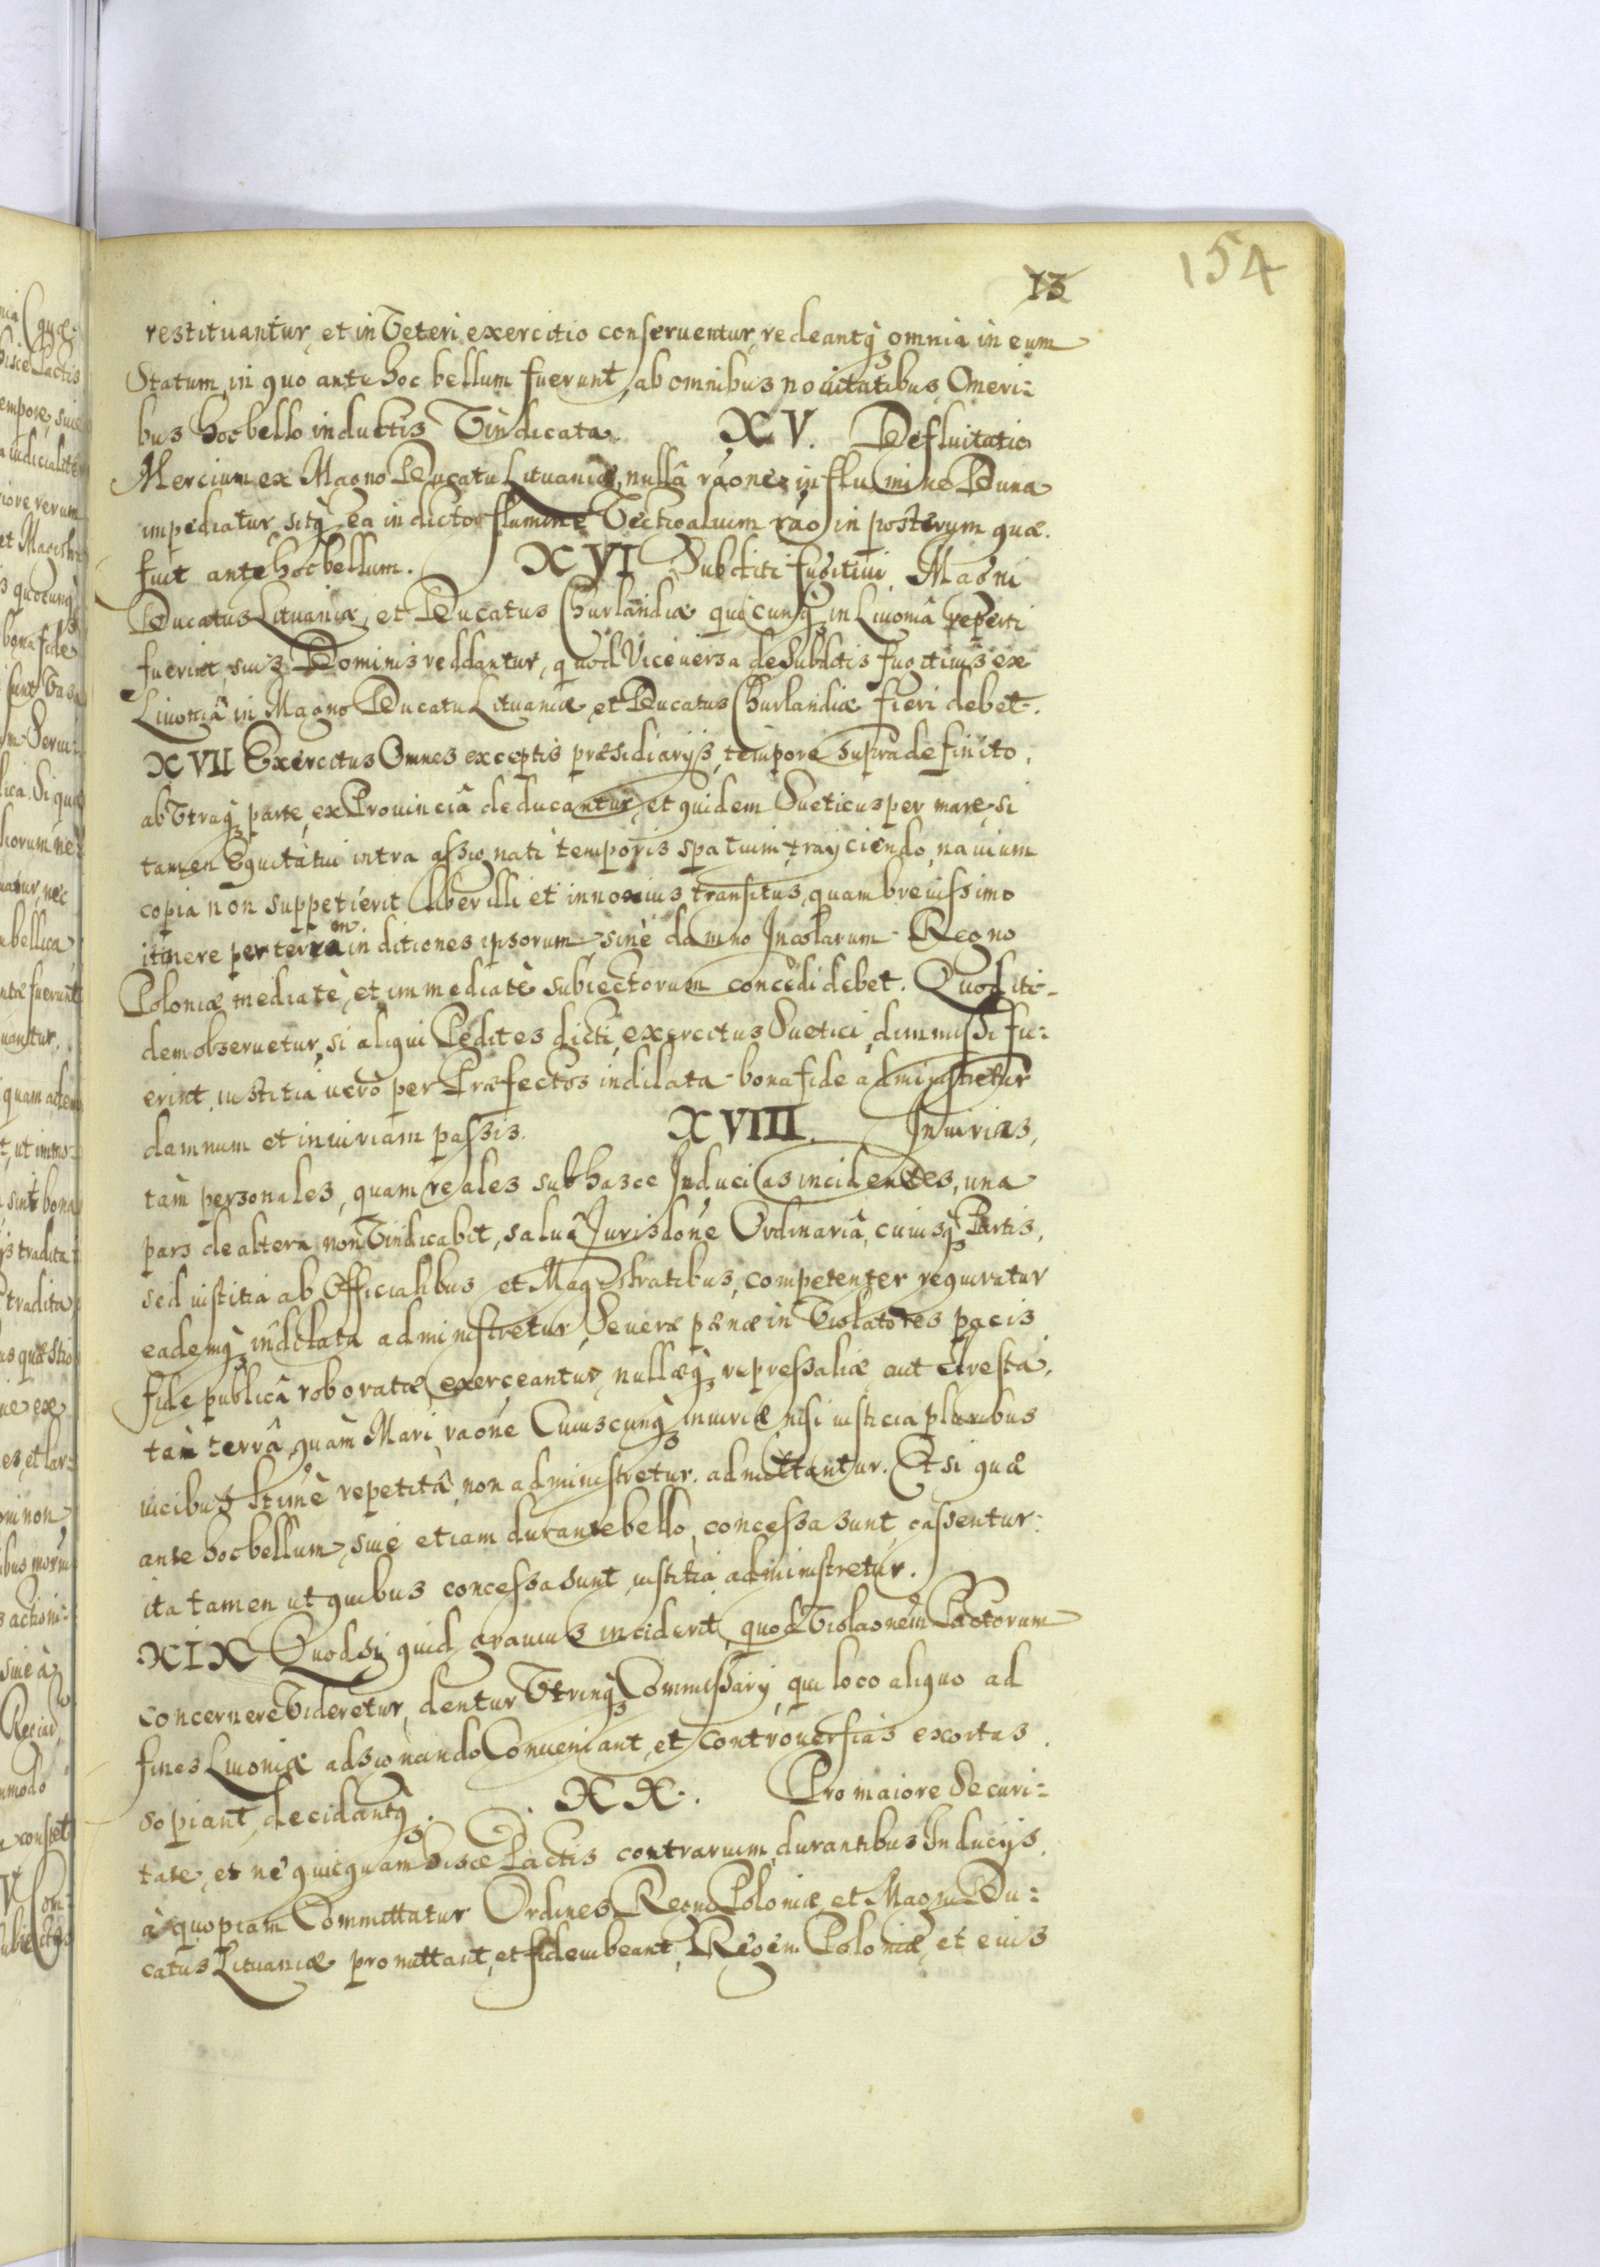 154
13
restituantur, et in Veteri exercitio conseruentur, redeantq́ꝫ omnia in eum
Statum, in quo ante hoc bellum fuerunt, ab omnibus nouitatibus, Oneri-
bus hoc bello inductis Vindicata. XV. Defluitatio
Mercium ex Magno Ducatu Lituaniæ, nullâ raõne in flumine Duna
impediatur, sitq́ ea in dicto flumine Vectigalium raõ in posterum quæ
fuit ante hoc bellum. XVI Subditi fugitiui Magni
Ducatus Lituaniæ, et Ducatus Churlandiæ quicunq́ꝫ in Liuoniâ reperti
fuerint suis Dominis reddantur, quod Vice uersa de Subditis fugitiuis ex
Liuoniâ in Magno Ducatu Lituaniæ, et Ducatus Churlandiæ fieri debet.
XVII Exercitus Omnes exceptis præsidiarijs, tempore supra definito,
ab Vtraq́ꝫ parte, ex Prouinciâ deducantur, et quidem Sueticus per mare, si
tamen Equitatui intra assignati temporis spatium traijciendo, nauium
copia non suppetierit liber illi et innoxius transitus, quam breuissimo
itinere per terram in ditiones ipsorum, sine damno Incolarum Regno
Poloniæ mediatè, et immediatè subiectorum concedi debet. Quod iti-
dem obseruetur, si aliqui Pedites dicti exercitus Suetici dimmissi fu-
erint, iustitia uerò per Præfectos indilata bona fide administretur
damnum et iniuriam passis. XVIII. Iniurias,
tàm personales, quam reales sub hasce Inducias incidentes, una
pars de altera non Vindicabit, saluâ Jurisdõne Ordinariâ, cuiusq́ꝫ Partis,
sed iustitia ab Officialibus et Magistratibus, competenter requiratur
eademq́ꝫ indilata administretur, Seueræ pænæ in Violatores pacis
fide publicâ roboratæ, exerceantur, nullæq́ꝫ repressaliæ aut Aresta,
tàm terrâ, quàm Mari raõne Cuiuscunq́ꝫ iniuriæ nisi iusticia pluribus
uicibus ltimè repetitâ, non administretur, admittantur. Et si quæ
ante hoc bellum, siue etiam durante bello, concessa sunt, cassentur:
ita tamen ut quibus concessa sunt, iustitia administretur.
XIX Quod si quid grauius inciderit, quod Violaõnem Pactorum
concernere Videretur, dentur Vtrinq́ꝫ Commissarij, qui loco aliquo ad
fines Liuoniæ adsignando Conueniant, et Controuersias exortas
sopiant, decidantq́ꝫ. XX. Pro maiore Securi-
tate, et nè quicquam hisce Pactis contrarium, durantibus Inducijs,
à quopiam Committatur Ordines Regni Poloniæ, et Magni Du-
catus Lituaniæ promittant, et fidem iubeant, Regem Poloniæ, et eius